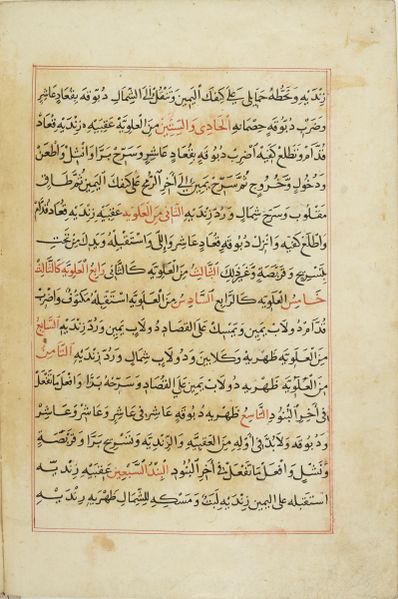 زنديه وتحطه حمايلي على كتفك اليمين وتنقل الى الشمال دبوقه بقعاد عاشر
وضرب دبوقه حصانه الحادي والستين من العلويه عقبيه زنديه قعاد
قدام وتطلع كفيه اضرب دبوقه بقعاد عاشر وسرح برا وانشل واطعن
ودخول وخروج ثم سرح يمين الى اخر الرمح على كتفك اليمين ثم طاف
مقلوب وسرح شمال ورد زنديه الثاني من العلويه عقبيه زنديه قعاد قدام
واطلع كفيه وانزل دبوقه قعاد عاشر والى واستقبله ويدك من تحت
وقرنصة وغير ذلك الثالث من العلويه كالثاني رابع العلويه كالثالث
خامس العلويه كالرابع السادس من العلويه استقبله مكفوف واضرب
قدام دولاب يمين ويمسك على القصاد دولاب يمين ورد زنديه السابع
من العلويه ظهريه وكلابين ودولاب شمال ورد زنديه الثامن
من العلويه ظهريه دولاب يمين على القصاد وسرحه برا وافعل ما تفعل
في اخر البنود التاسع ظهريه دبوقه عاشر في عاشر وعاشر وعاشر
ودبوقه ولا بد في اوله من العقبيه والزنديه وتسريح برا وقرنصة
وتشل وافعل ما تفعل في اخر البنود البند السبعين عقبيه زنديه
استقبله على اليمين زنديه ومسكه للشمال ظهريه زنديه